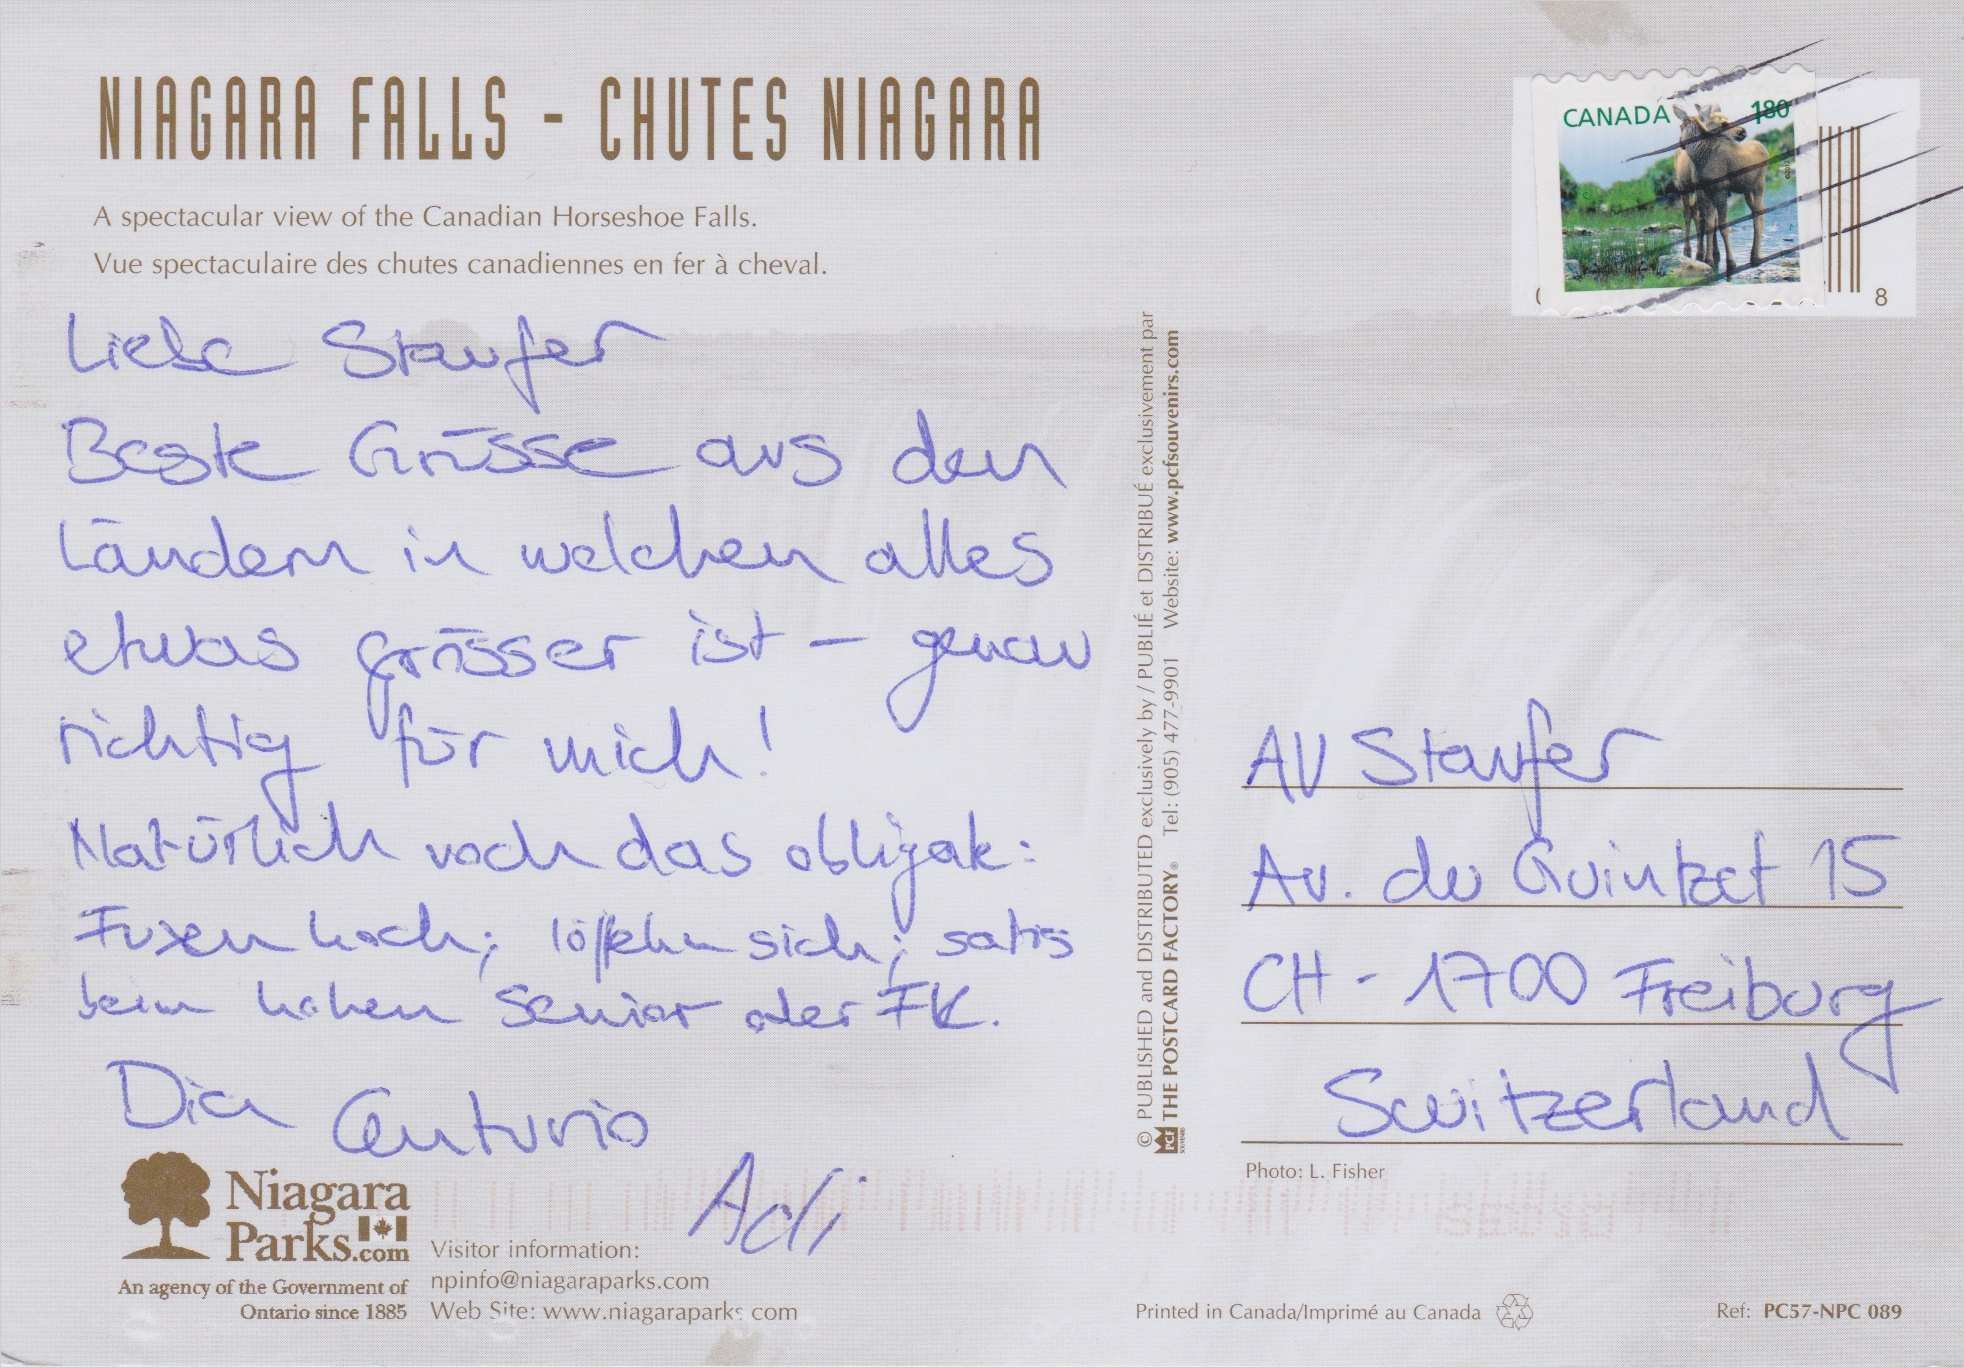 NIAGARA FALLS - CHUTES NIAGARA
A spectacular view of the Canadian Horseshoe Falls.
Vue spectaculaire des chutes canadiennes en fer à cheval.
CANADA 180
8
Liebe Staufer
Beste Grüsse aus den
Ländern in welchen alles
etwas grösser ist – genau
richtig für mich!
Natürlich noch das obligak:
Fuxen hoch; löffeln sich; satis
beim hohen Senior oder FK.
Die Centurio
Adi
© PUBLISHED and DISTRIBUTED exclusively by / PUBLIÉ et DISTRIBUÉ exclusivement par
THE POSTCARD FACTORY® Tel: (905) 477-9901 Website: www.pcfsouvenirs.com
PCF
SOUVENIRS
AV Staufer
Av. du Guintzet 15
CH - 1700 Freiburg
Switzerland
Photo: L. Fisher
Niagara
Parks.com
An agency of the Government of
Ontario since 1885
Visitor information:
npinfo@niagaraparks.com
Web Site: www.niagaraparks.com
Printed in Canada/Imprimé au Canada
Ref: PC57-NPC 089